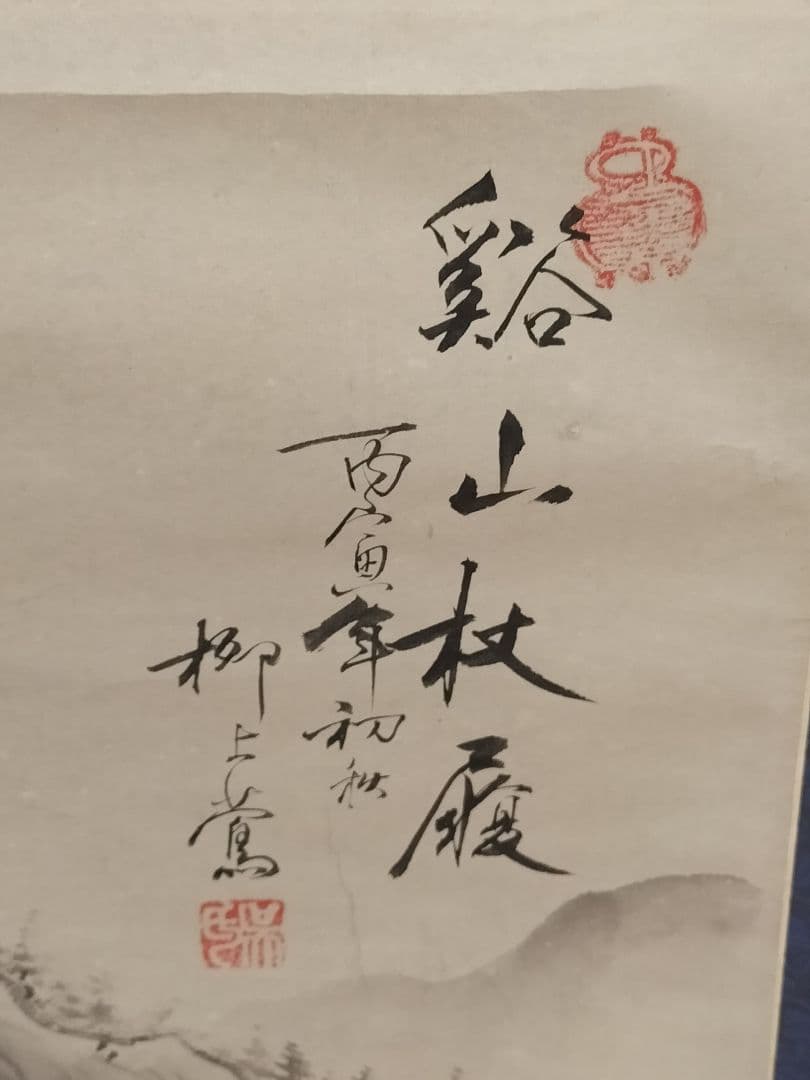 谿山杖履
丙寅年初秋
柳上鶯